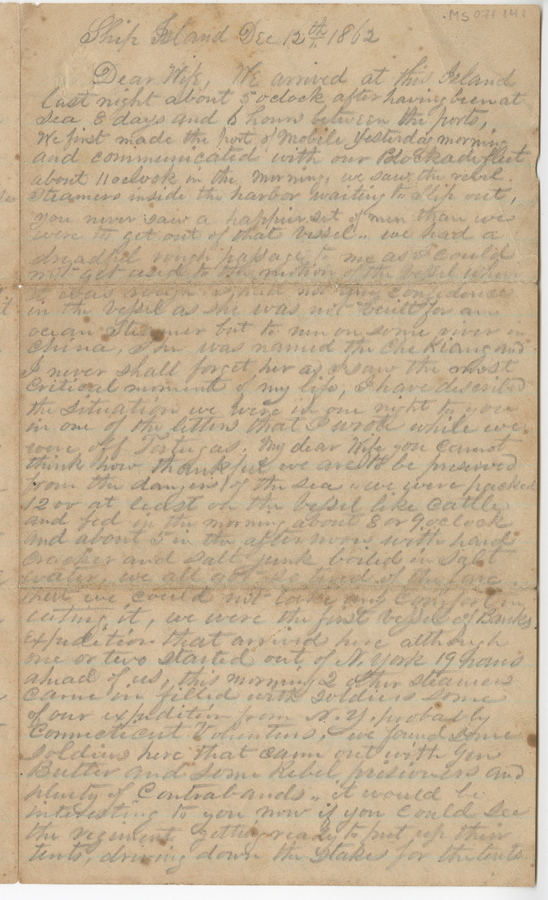 MS 071
Ship Island Dec 12th 1862
Dear Wife, We arrived at this Island
last night about 5 oclock after having been at
sea 8 days and 6 hours between the ports,
We first made the port of Mobile Yesterday morning
and communicated with our Blockade fleet
about 11 oclock in the morning, we saw the rebel
Steamers inside the harbor waiting to slip out,
you never saw a happier set of men than we
were to get out of that vessel, we had a
dreadful rough passage to me as I could
not get used to the motion of the vessel when
it was rough I had not any confidence
in the vessel as she was not built for an
ocean Steamer but to run on some river in
China, She was named the Che Kiang and
I never shall forget her as I saw the most
Critical moment of my life, I have described
the situation we were in one night to you
in one of the letters that I wrote while we
were off Tortugas, My dear Wife you cannot
think how thankful we are to be preserved
from the dangers of the sea, we were packed
1200 at least on the vessel like cattle
and fed in the morning about 8 or 9 oclock
and about 5 in the afternoon with hard
cracker and salt junk boiled in salt
water, we all got so tired of the fare
that we could not take any comfort in
eating it, we were the first vessel of Banks
Expedition that arrived here although
one or two started out of N. York 19 hours
ahead of us, this morning 2 other steamers
came in filled with soldiers some
of our expedition from N. Y. probably
Connecticut Volunteers, we found some
soldiers here that came out with Gen
Butler and some Rebel prisoners and
plenty of Contrabands, it would be
interesting to you now if you could see
the regiment getting ready to put up their
tents, driving down the Stakes for the tents